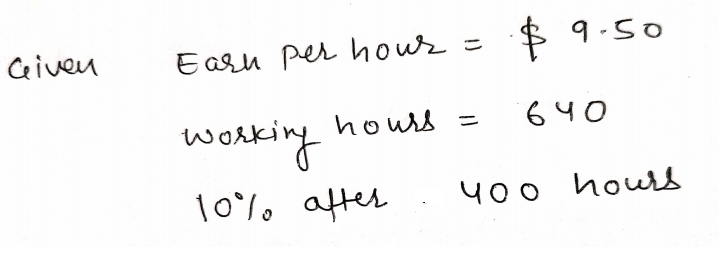 Given Earn per hour = $ 9.50
working hours = 640
10% after 400 hours